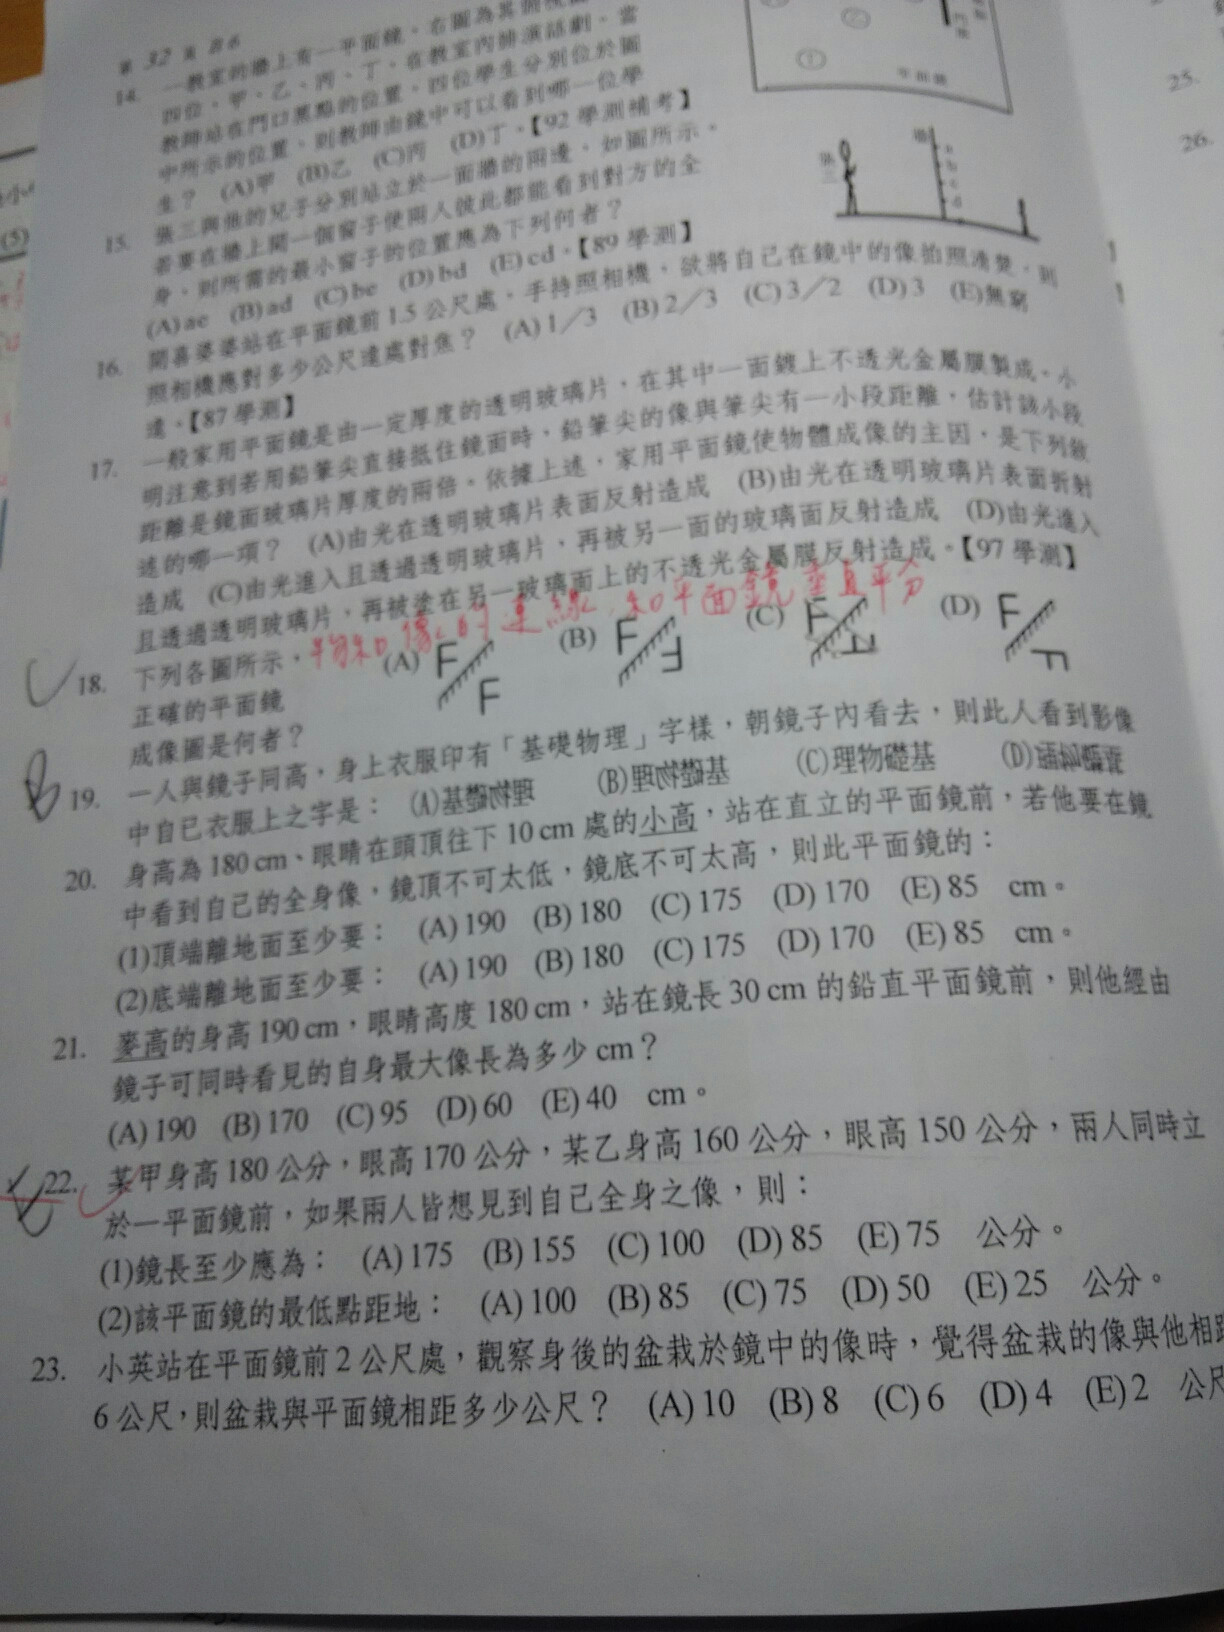 第 32 頁 B6
14. 一教室的牆上有一平面鏡,右圖為其俯視圖
四位,甲、乙、丙、丁,在教室內排演話劇,當
教師站在門口黑點的位置,四位學生分別位於圖
中所示的位置,則教師由鏡中可以看到哪一位學
生? (A)甲 (B)乙 (C)丙 (D)丁。【92 學測補考】
15. 張三與他的兒子分別站立於一面牆的兩邊,如圖所示。
若要在牆上開一個窗子使兩人彼此都能看到對方的全
身,則所需的最小窗子的位置應為下列何者?
(A) ac (B) ad (C) bc (D) bd (E) cd。【89 學測】
16. 開喜婆婆站在平面鏡前 1.5 公尺處,手持照相機,欲將自己在鏡中的像拍照清楚,則
照相機應對多少公尺遠處對焦? (A) 1/3 (B) 2/3 (C) 3/2 (D) 3 (E)無窮
遠。【87 學測】
17. 一般家用平面鏡是由一定厚度的透明玻璃片,在其中一面鍍上不透光金屬膜製成。小
明注意到若用鉛筆尖直接抵住鏡面時,鉛筆尖的像與筆尖有一小段距離,估計該小段
距離是鏡面玻璃片厚度的兩倍。依據上述,家用平面鏡使物體成像的主因,是下列敘
述的哪一項? (A)由光在透明玻璃片表面反射造成 (B)由光在透明玻璃片表面折射
造成 (C)由光進入且透過透明玻璃片,再被另一面的玻璃面反射造成 (D)由光進入
且透過透明玻璃片,再被塗在另一玻璃面上的不透光金屬膜反射造成。【97 學測】
18. 下列各圖所示,
正確的平面鏡
成像圖是何者?
(A) (B) (C) (D)
B
19. 一人與鏡子同高,身上衣服印有「基礎物理」字樣,朝鏡子內看去,則此人看到影像
中自己衣服上之字是: (A) (B) (C)理物礎基 (D)
20. 身高為 180 cm、眼睛在頭頂往下 10 cm 處的小高,站在直立的平面鏡前,若他要在鏡
中看到自己的全身像,鏡頂不可太低,鏡底不可太高,則此平面鏡的:
(1)頂端離地面至少要: (A) 190 (B) 180 (C) 175 (D) 170 (E) 85 cm。
(2)底端離地面至少要: (A) 190 (B) 180 (C) 175 (D) 170 (E) 85 cm。
21. 麥高的身高 190 cm,眼睛高度 180 cm,站在鏡長 30 cm 的鉛直平面鏡前,則他經由
鏡子可同時看見的自身最大像長為多少 cm?
(A) 190 (B) 170 (C) 95 (D) 60 (E) 40 cm。
22. 某甲身高 180 公分,眼高 170 公分,某乙身高 160 公分,眼高 150 公分,兩人同時立
於一平面鏡前,如果兩人皆想見到自己全身之像,則:
(1)鏡長至少應為: (A) 175 (B) 155 (C) 100 (D) 85 (E) 75 公分。
(2)該平面鏡的最低點距地: (A) 100 (B) 85 (C) 75 (D) 50 (E) 25 公分。
23. 小英站在平面鏡前 2 公尺處,觀察身後的盆栽於鏡中的像時,覺得盆栽的像與他相距
6 公尺,則盆栽與平面鏡相距多少公尺? (A) 10 (B) 8 (C) 6 (D) 4 (E) 2 公尺
25.
26.